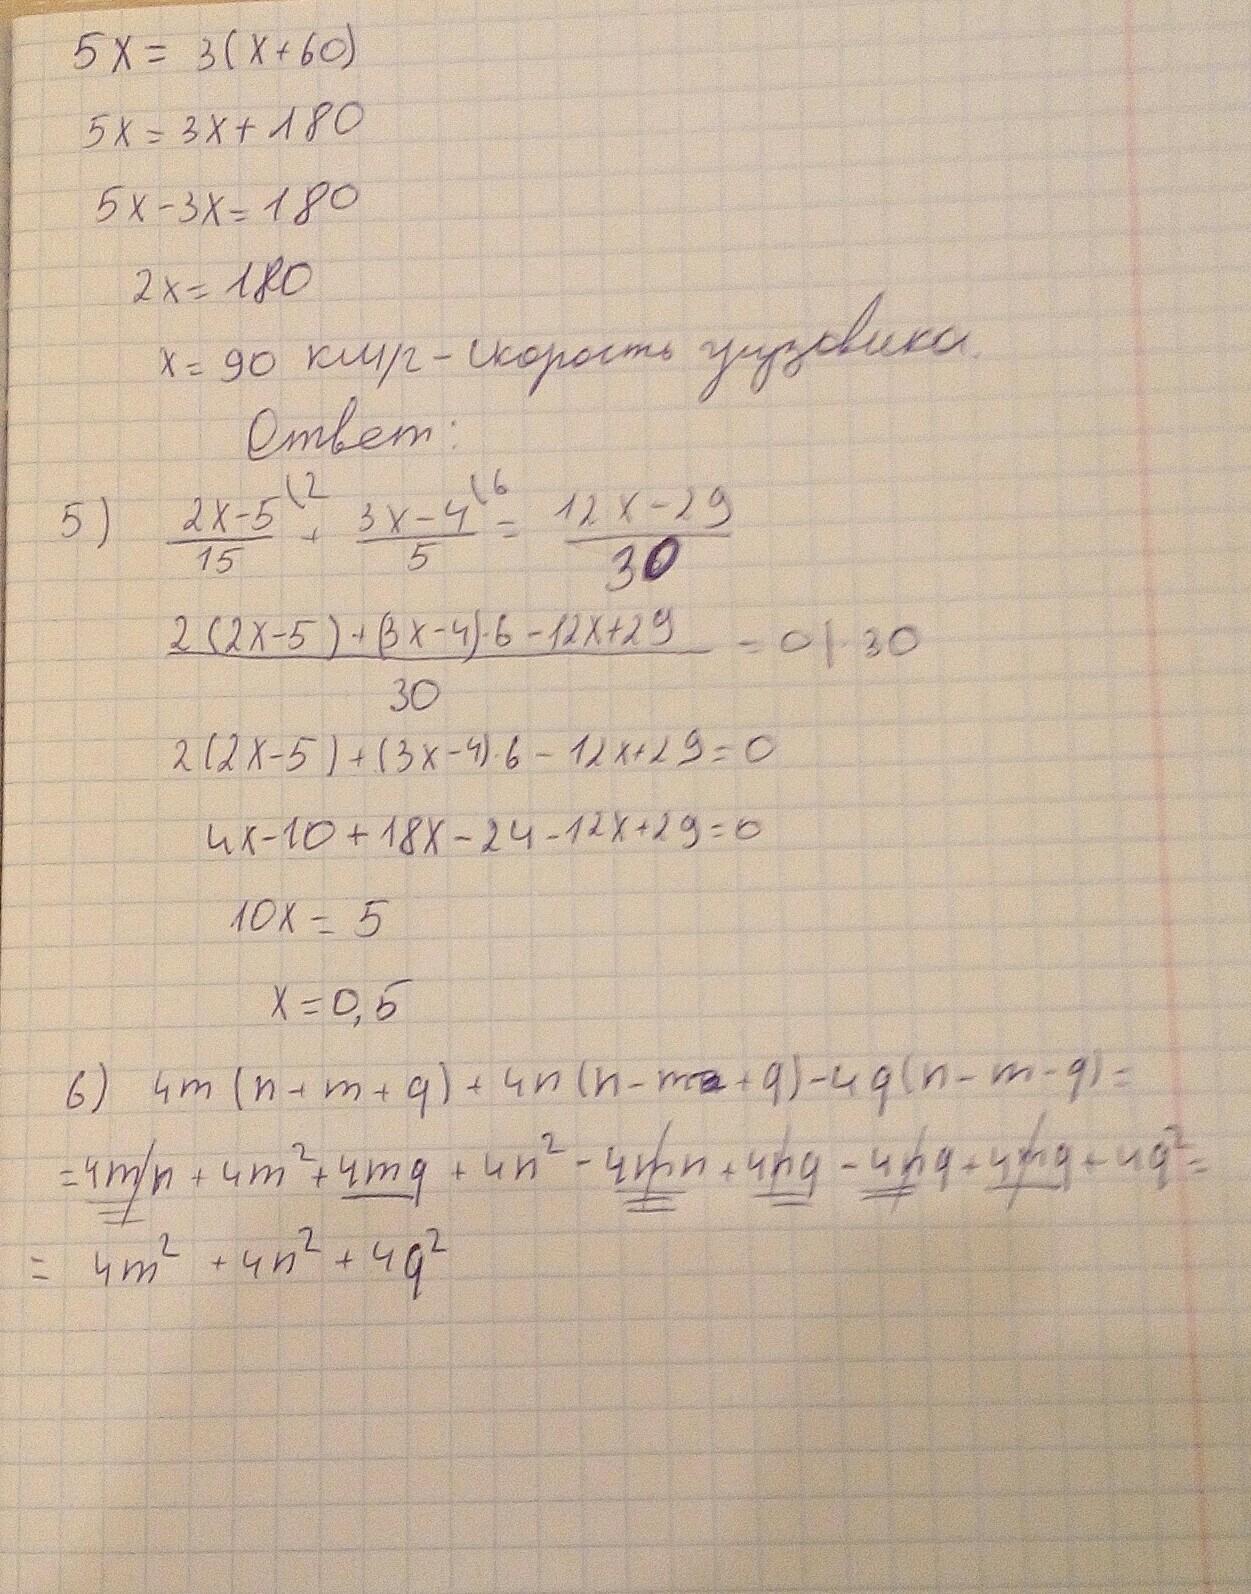 5x = 3(x+60)
5x = 3x + 180
5x - 3x = 180
2x = 180
x = 90 км/г - скорость грузовика.
Ответ:
5) (2x-5)/15 \2 + (3x-4)/5 \6 = (12x-29)/30
(2(2x-5)+(3x-4)·6-12x+29)/30 = 0 |·30
2(2x-5)+(3x-4)·6-12x+29=0
4x-10+18x-24-12x+29=0
10x = 5
x = 0,5
6) 4m(n+m+q)+4n(n-m+q)-4q(n-m-q)=
=4mn+4m²+4mq+4n²-4mn+4nq-4nq+4mq+4q²=
= 4m² + 4n² + 4q²